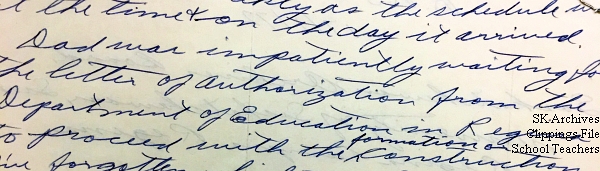 the time & on the day it arrived.
Dad was impatiently waiting for
the letter of authorization from the
Department of Education in Regina
formation or
to proceed with the Construction
forgotten
SK Archives
Clippings File
School Teachers